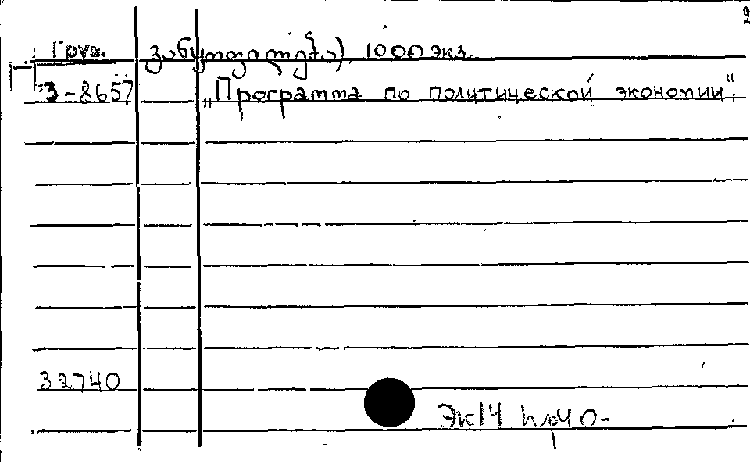 2
Груз. 1000 экз.
3-8657 „Программа по политической экономии“.
32740
Эк14